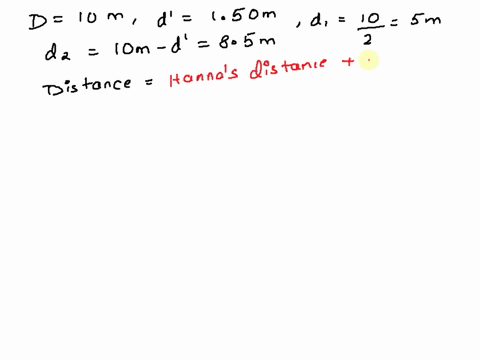 D = 10 m, d' = 1.50m, d₁ = 10/2 = 5m
d₂ = 10m - d' = 8.5m
Distance = Hanna's distance +